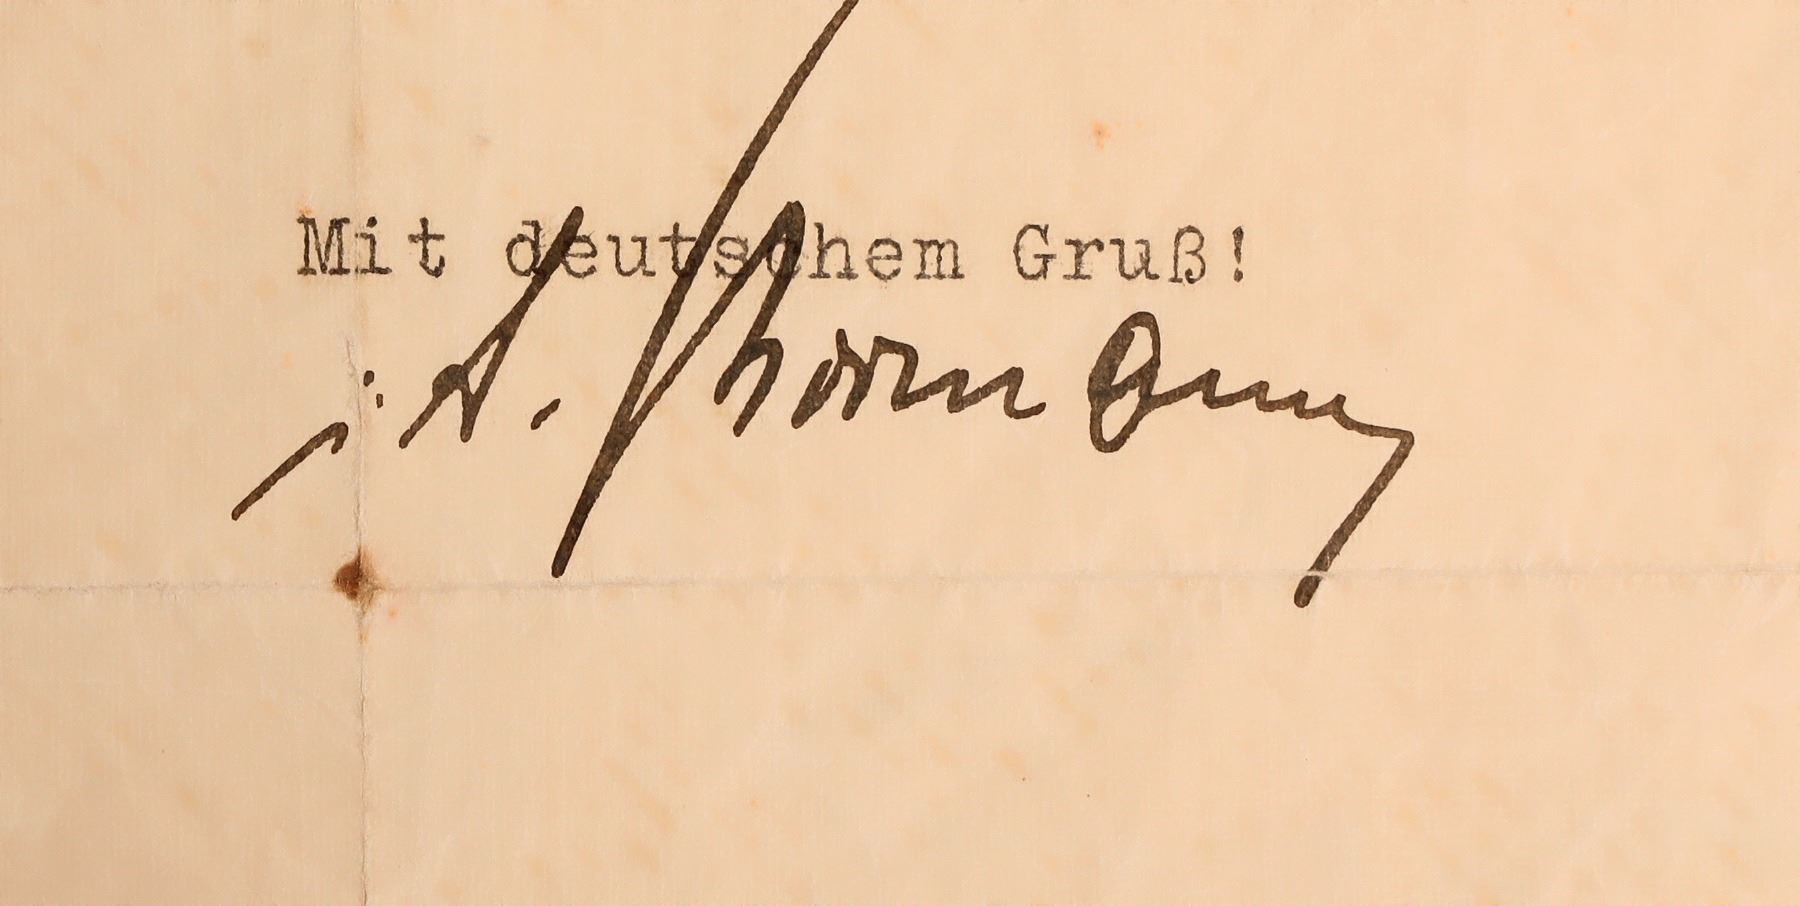 Mit deutschem Gruß!
i. A.